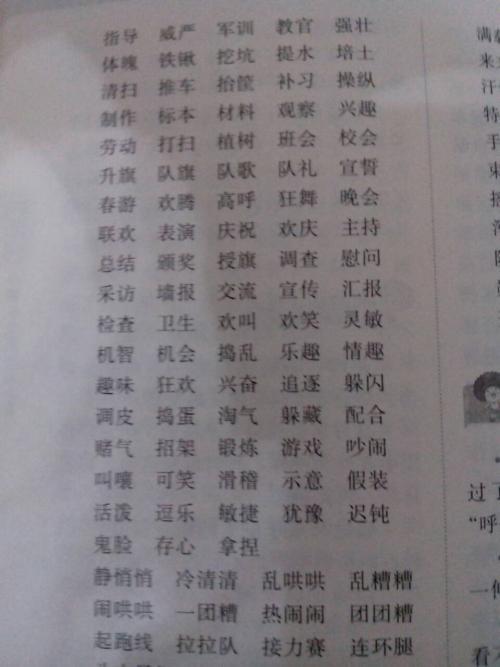 指导 威严 军训 教官 强壮
体魄 铁锹 挖坑 提水 培土
清扫 推车 抬筐 补习 操纵
制作 标本 材料 观察 兴趣
劳动 打扫 植树 班会 校会
升旗 队旗 队歌 队礼 宣誓
春游 欢腾 高呼 狂舞 晚会
联欢 表演 庆祝 欢庆 主持
总结 颁奖 授旗 调查 慰问
采访 墙报 交流 宣传 汇报
检查 卫生 欢叫 欢笑 灵敏
机智 机会 捣乱 乐趣 情趣
趣味 狂欢 兴奋 追逐 躲闪
调皮 捣蛋 淘气 躲藏 配合
赌气 招架 锻炼 游戏 吵闹
叫嚷 可笑 滑稽 示意 假装
活泼 逗乐 敏捷 犹豫 迟钝
鬼脸 存心 拿捏
静悄悄 冷清清 乱哄哄 乱糟糟
闹哄哄 一团糟 热闹闹 团团糟
起跑线 拉拉队 接力赛 连环腿
满
来
汗
特
手
过
“呼
一
看